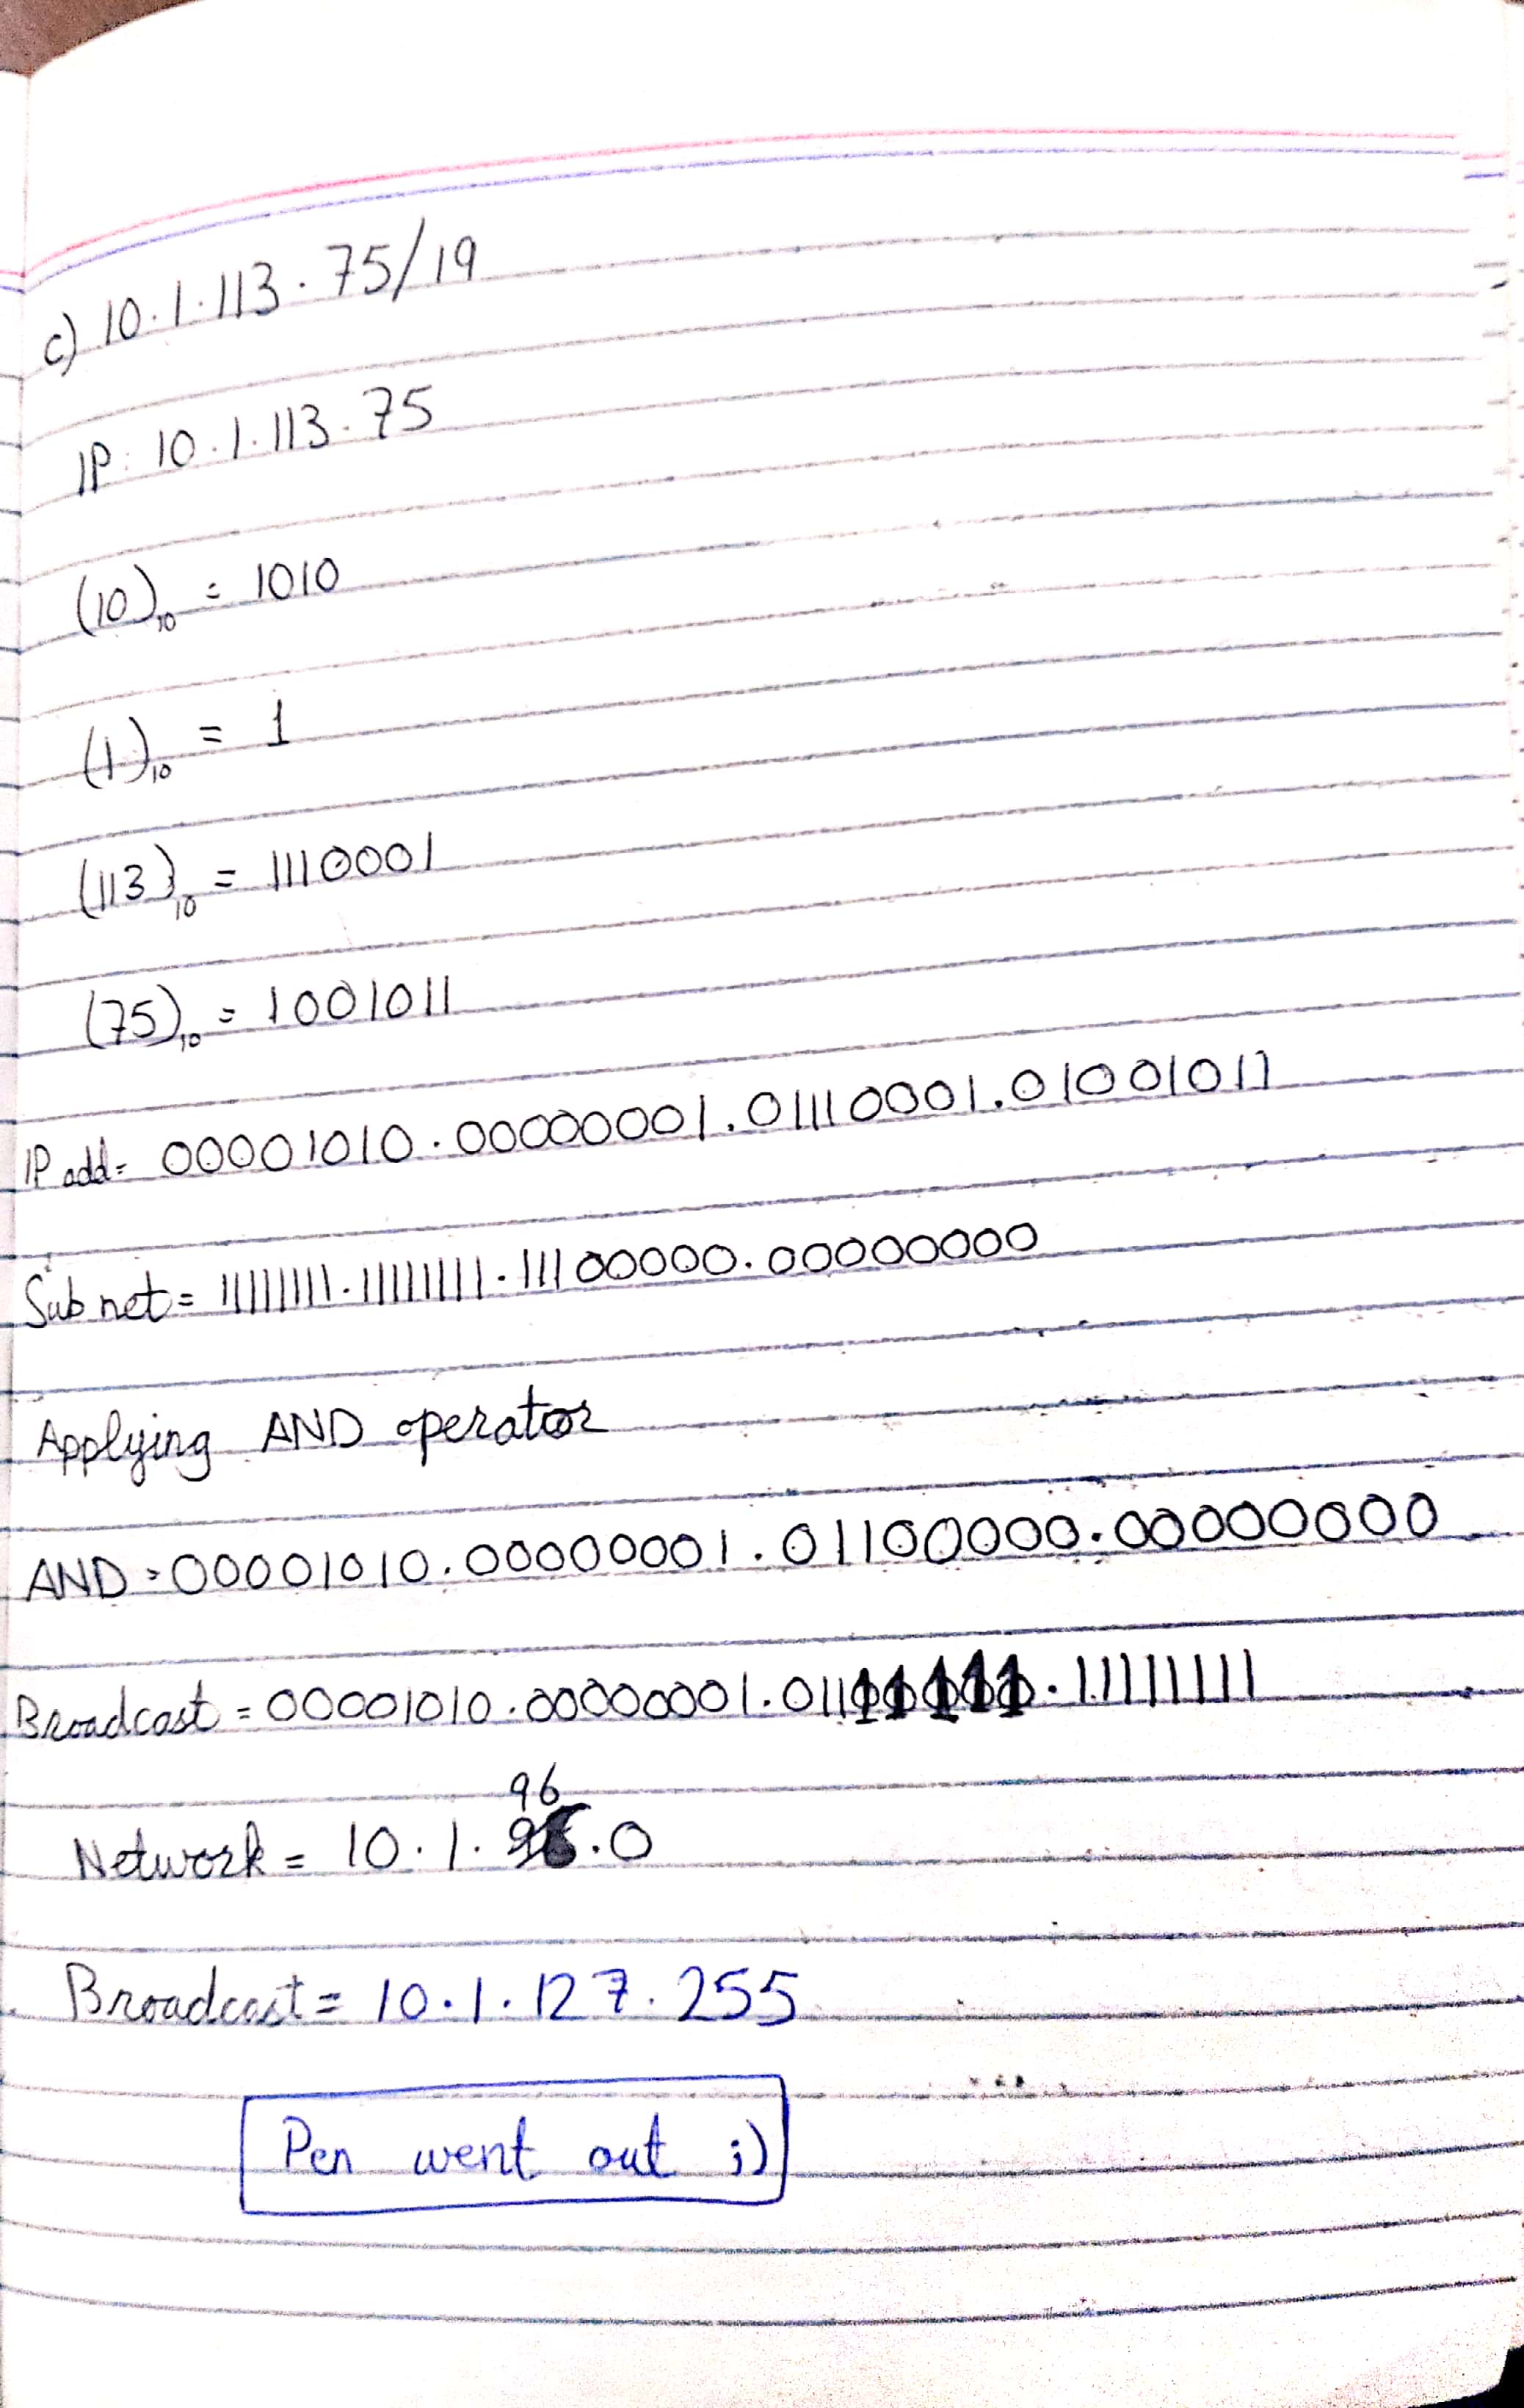 c) 10.1.113.75/19
IP: 10.1.113.75
(10)10 = 1010
(1)10 = 1
(113)10 = 1110001
(75)10 = 1001011
IP add= 00001010.00000001.01110001.01001011
Subnet= 11111111.11111111.11100000.00000000
Applying AND operator
AND = 00001010.00000001.01100000.00000000
Broadcast = 00001010.00000001.01111111.11111111
96
Network = 10.1.96.0
Broadcast = 10.1.127.255
Pen went out ;)